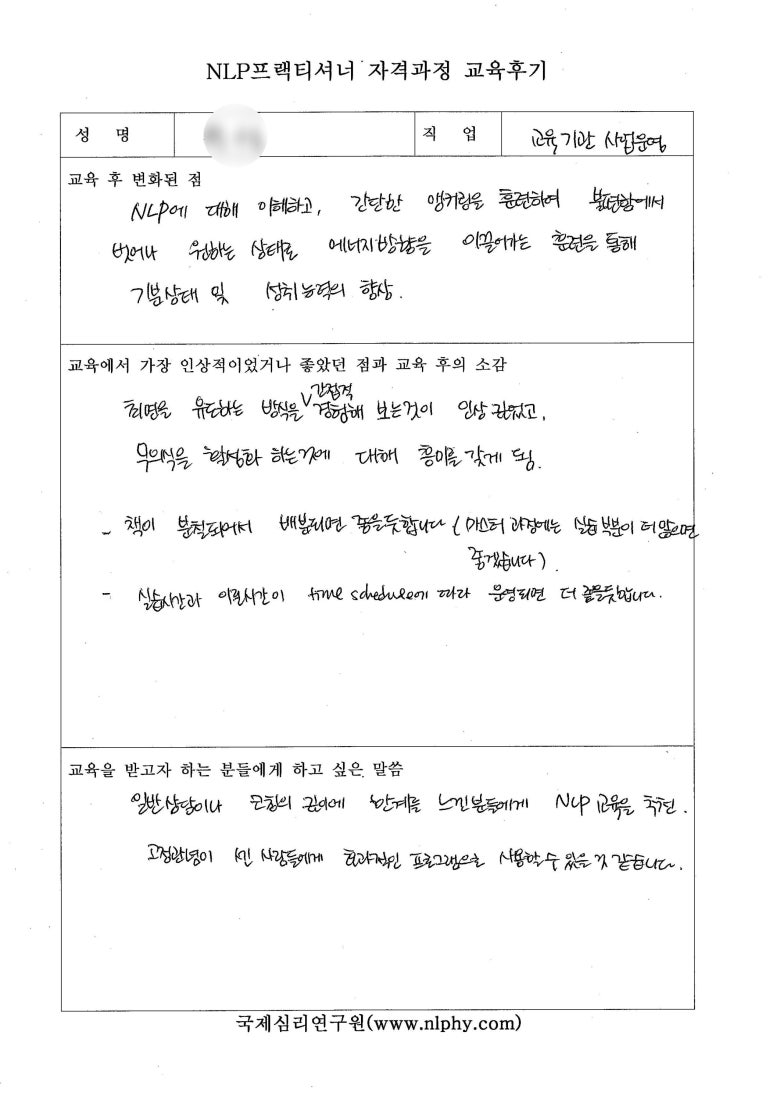 NLP프랙티셔너 자격과정 교육후기
성 명
직 업 교육기관 사업운영
교육 후 변화된 점
NLP에 대해 이해하고, 간단한 앵커링을 훈련하여 불편함에서
벗어나 원하는 상태로 에너지방향을 이끌어가는 훈련을 통해
기분상태 및 성취능력의 향상.
교육에서 가장 인상적이었거나 좋았던 점과 교육 후의 소감
최면을 유도하는 방식을 간접적 경험해 보는것이 인상 깊었고,
무의식을 활성화 하는것에 대해 흥미를 갖게 됨.
- 책이 분철되어서 배분되면 좋을듯합니다 (마스터 과정에는 실습부분이 더 많으면
좋겠습니다)
- 실습시간과 이론시간이 time schedule에 따라 운영되면 더 좋을듯합니다.
교육을 받고자 하는 분들에게 하고 싶은 말씀
일반상담이나 한계를 느낀분들에게 NLP 교육을 추천.
고정관념이 사람들에게 효과적인 프로그램으로 사용할수 있을것 같습니다.
국제심리연구원(www.nlphy.com)